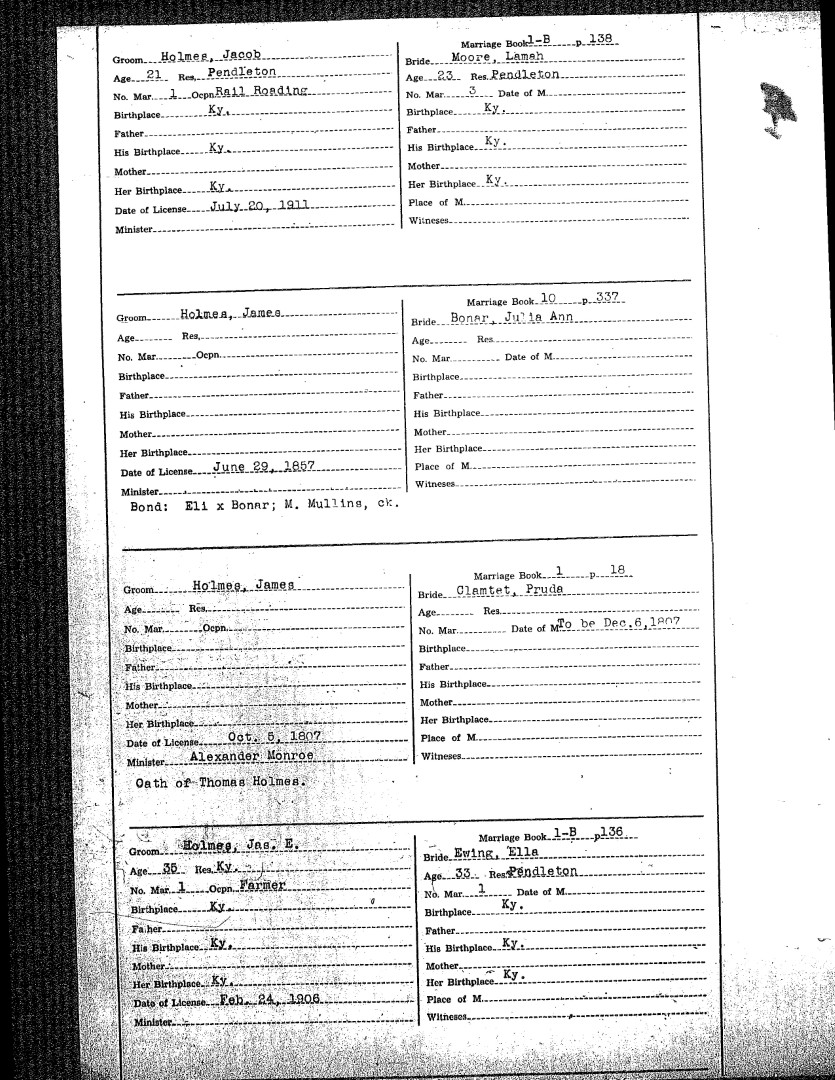 Marriage Book 1-B p 138
Groom Holmes, Jacob
Bride Moore, Lamah
Age 21 Res, Pendleton
Age 23 Res. Pendleton
No. Mar. 1 Ocpn Rail Roading
No. Mar. 3 Date of M.
Birthplace Ky.
Birthplace Ky.
Father
Father
His Birthplace Ky.
His Birthplace Ky.
Mother
Mother
Her Birthplace Ky.
Her Birthplace Ky.
Date of License July 20, 1911
Place of M.
Minister
Witneses
Marriage Book 10 p. 337
Groom Holmes, James
Bride Bonar, Julia Ann
Age Res,
Age Res.
No. Mar. Ocpn.
No. Mar. Date of M.
Birthplace
Birthplace
Father
Father
His Birthplace
His Birthplace
Mother
Mother
Her Birthplace
Her Birthplace
Date of License June 29, 1857
Place of M.
Minister
Witneses
Bond: Eli x Bonar; M. Mullins, ck.
Marriage Book 1 p. 18
Groom Holmes, James
Bride Clamtet, Pruda
Age Res.
Age Res.
No. Mar. Ocpn.
No. Mar. Date of M. To be Dec.6,1807
Birthplace
Birthplace
Father
Father
His Birthplace
His Birthplace
Mother
Mother
Her Birthplace
Her Birthplace
Date of License Oct. 5, 1807
Place of M.
Minister Alexander Monroe
Witneses
Oath of Thomas Holmes.
Marriage Book 1-B p136
Groom Holmes, Jas. E.
Bride Ewing, Ella
Age 35 Res. Ky.
Age 33 Res. Pendleton
No. Mar. 1 Ocpn. Farmer
No. Mar. 1 Date of M.
Birthplace Ky.
Birthplace Ky.
Father
Father
His Birthplace Ky.
His Birthplace Ky.
Mother
Mother
Her Birthplace Ky.
Her Birthplace Ky.
Date of License Feb. 24, 1906
Place of M.
Minister
Witneses